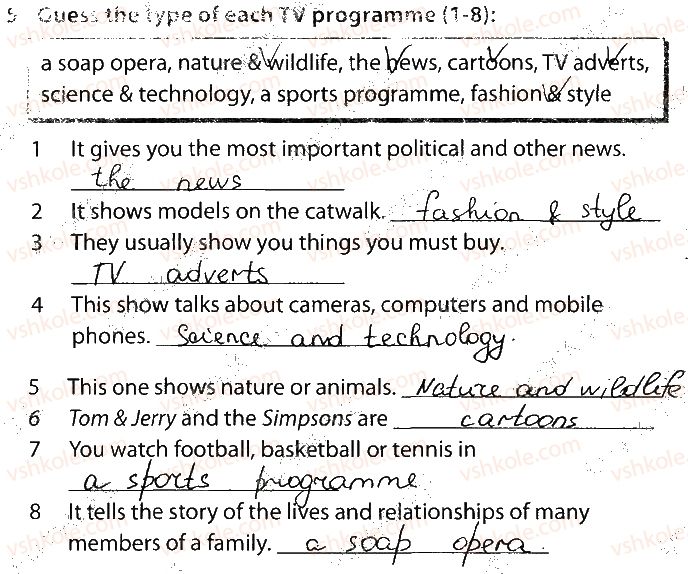 5 Guess the type of each TV programme (1-8):
a soap opera, nature & wildlife, the news, cartoons, TV adverts,
science & technology, a sports programme, fashion & style
1 It gives you the most important political and other news.
the news
2 It shows models on the catwalk. fashion & style
3 They usually show you things you must buy.
TV adverts
4 This show talks about cameras, computers and mobile
phones. Science and technology.
5 This one shows nature or animals. Nature and wildlife
6 Tom & Jerry and the Simpsons are cartoons
7 You watch football, basketball or tennis in
a sports programme
8 It tells the story of the lives and relationships of many
members of a family. a soap opera.